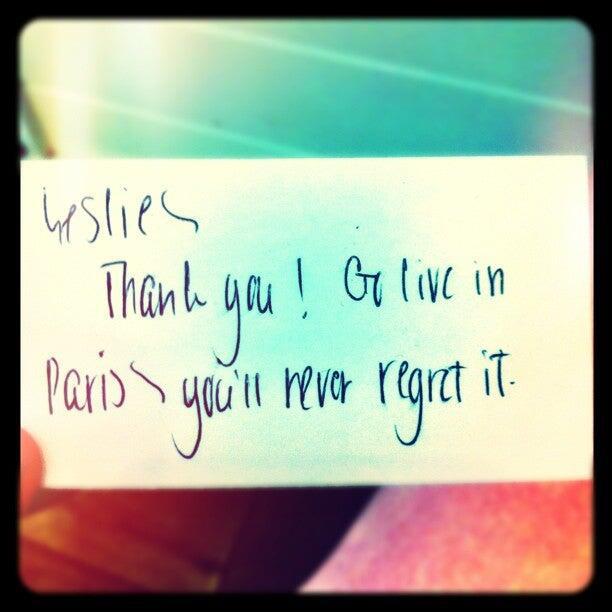 Leslie,
Thank you! Go live in
Paris, you'll never regret it.